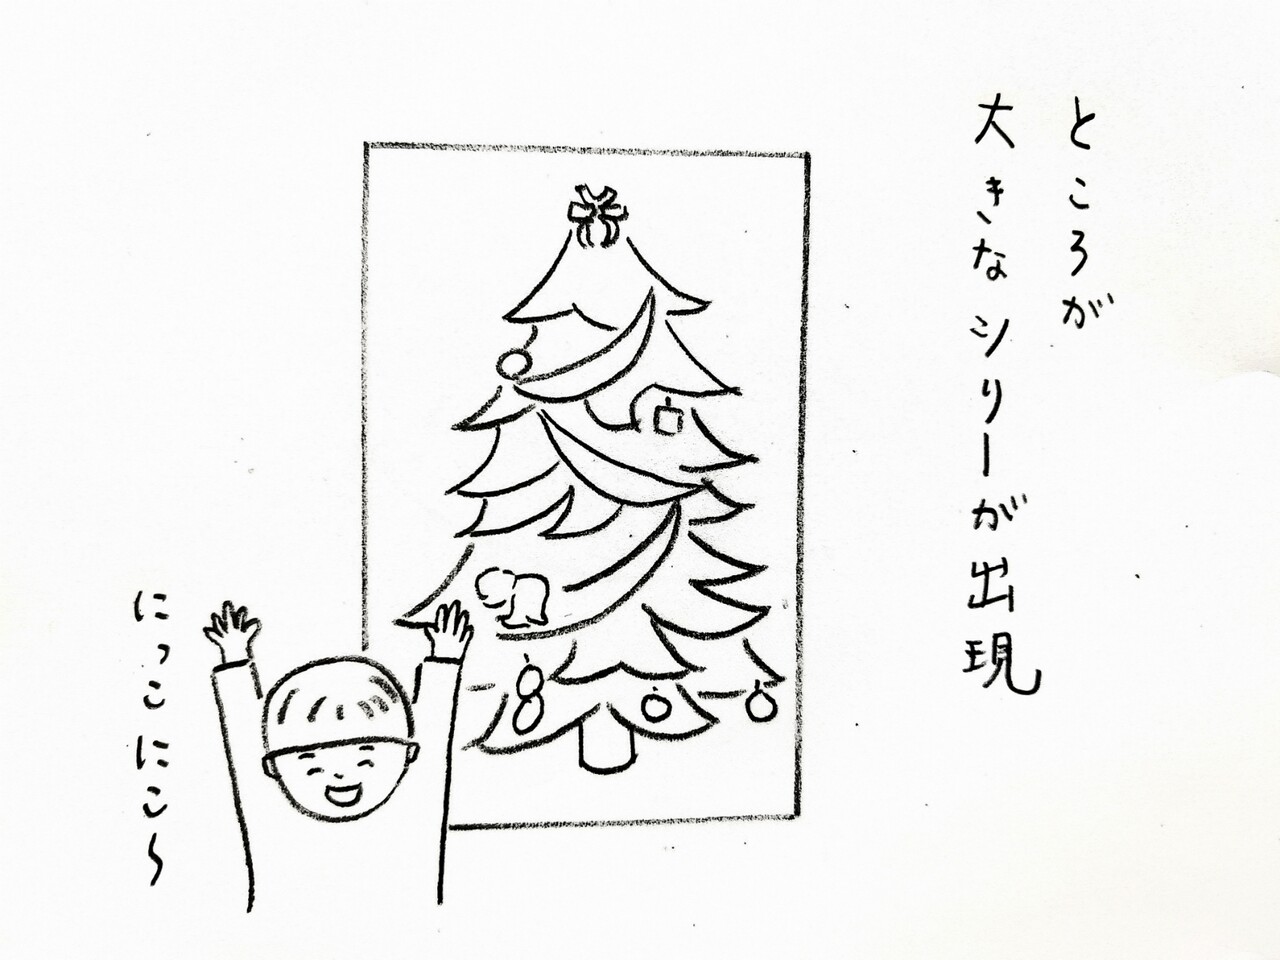 ところが
大きなツリーが出現
にっこにこ〜